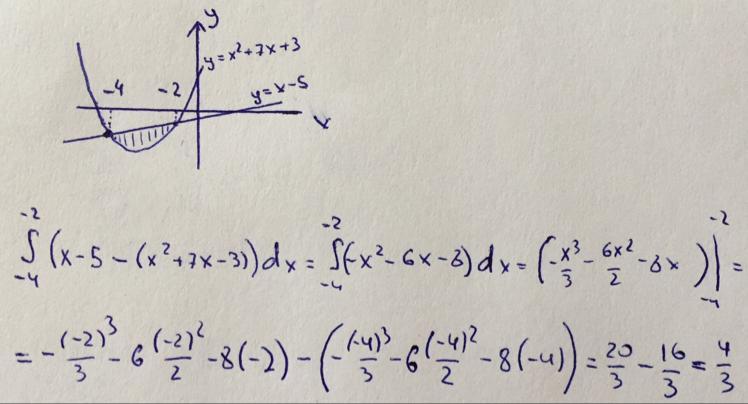 y
y=x²+7x+3
-4 -2 y=x-5
x
∫₋₄⁻² (x-5-(x²+7x-3))dx = ∫₋₄⁻² (-x²-6x-8)dx = (-x³/3 - 6x²/2 - 8x)|₋₄⁻² =
= -(-2)³/3 - 6(-2)²/2 - 8(-2) - (-(-4)³/3 - 6(-4)²/2 - 8(-4)) = 20/3 - 16/3 = 4/3